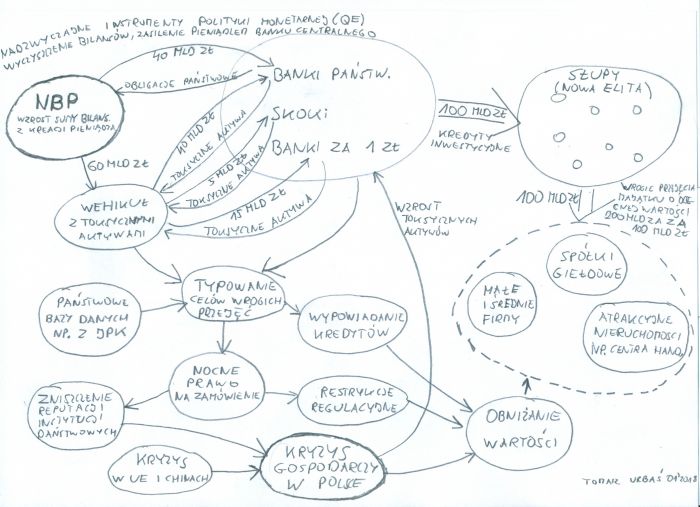 NADZWYCZAJNE INSTRUMENTY POLITYKI MONETARNEJ (QE)
WYCZYSZENIE BILANSÓW, ZASILENIE PIENIĄDZEM BANKU CENTRALNEGO
40 MLD ZŁ
OBLIGACJE PAŃSTWOWE
NBP
WZROST SUMY BILANS.
Z KREACJI PIENIĄDZA
60 MLD ZŁ
BANKI PAŃSTW.
SKOKI
BANKI ZA 1 ZŁ
40 MLD ZŁ
TOKSYCZNE AKTYWA
5 MLD ZŁ
TOKSYCZNE AKTYWA
15 MLD ZŁ
TOKSYCZNE AKTYWA
WEHIKUŁ
Z TOKSYCZNYMI
AKTYWAMI
100 MLD ZŁ
KREDYTY
INWESTYCYJNE
SŁUPY
(NOWA ELITA)
100 MLD ZŁ
WROGIE PRZEJĘCIA
MAJĄTKU O
CNEJ WARTOŚCI
200 MLD ZŁ ZA
100 MLD ZŁ
WZROST
TOKSYCZNYCH
AKTYWÓW
SPÓŁKI
GIEŁDOWE
MAŁE
I ŚREDNIE
FIRMY
ATRAKCYJNE
NIERUCHOMOŚCI
NP. CENTRA HAND.
TYPOWANIE
CELÓW WROGICH
PRZEJĘĆ
PAŃSTWOWE
BAZY DANYCH
NP. Z JPK
WYPOWIADANIE
KREDYTÓW
NOCNE
PRAWO
NA ZAMÓWIENIE
RESTRYKCJE
REGULACYJNE
ZNISZCZENIE
REPUTACJI
INSTYTUCJI
PAŃSTWOWYCH
OBNIŻANIE
WARTOŚCI
KRYZYS
W UE I CHINACH
KRYZYS
GOSPODARCZY
W POLSCE
TOMAK URBAŚ